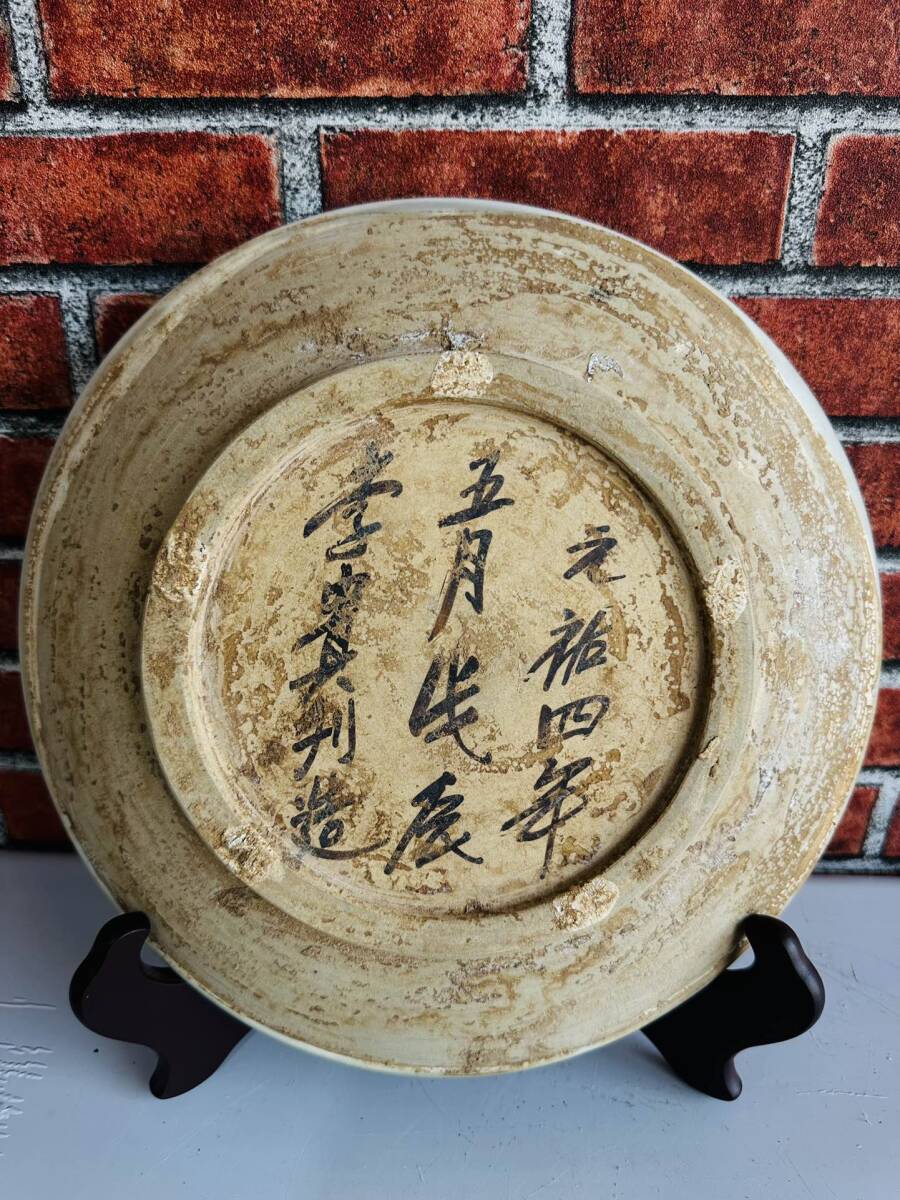 元祐四年
五月戊辰
李刊造